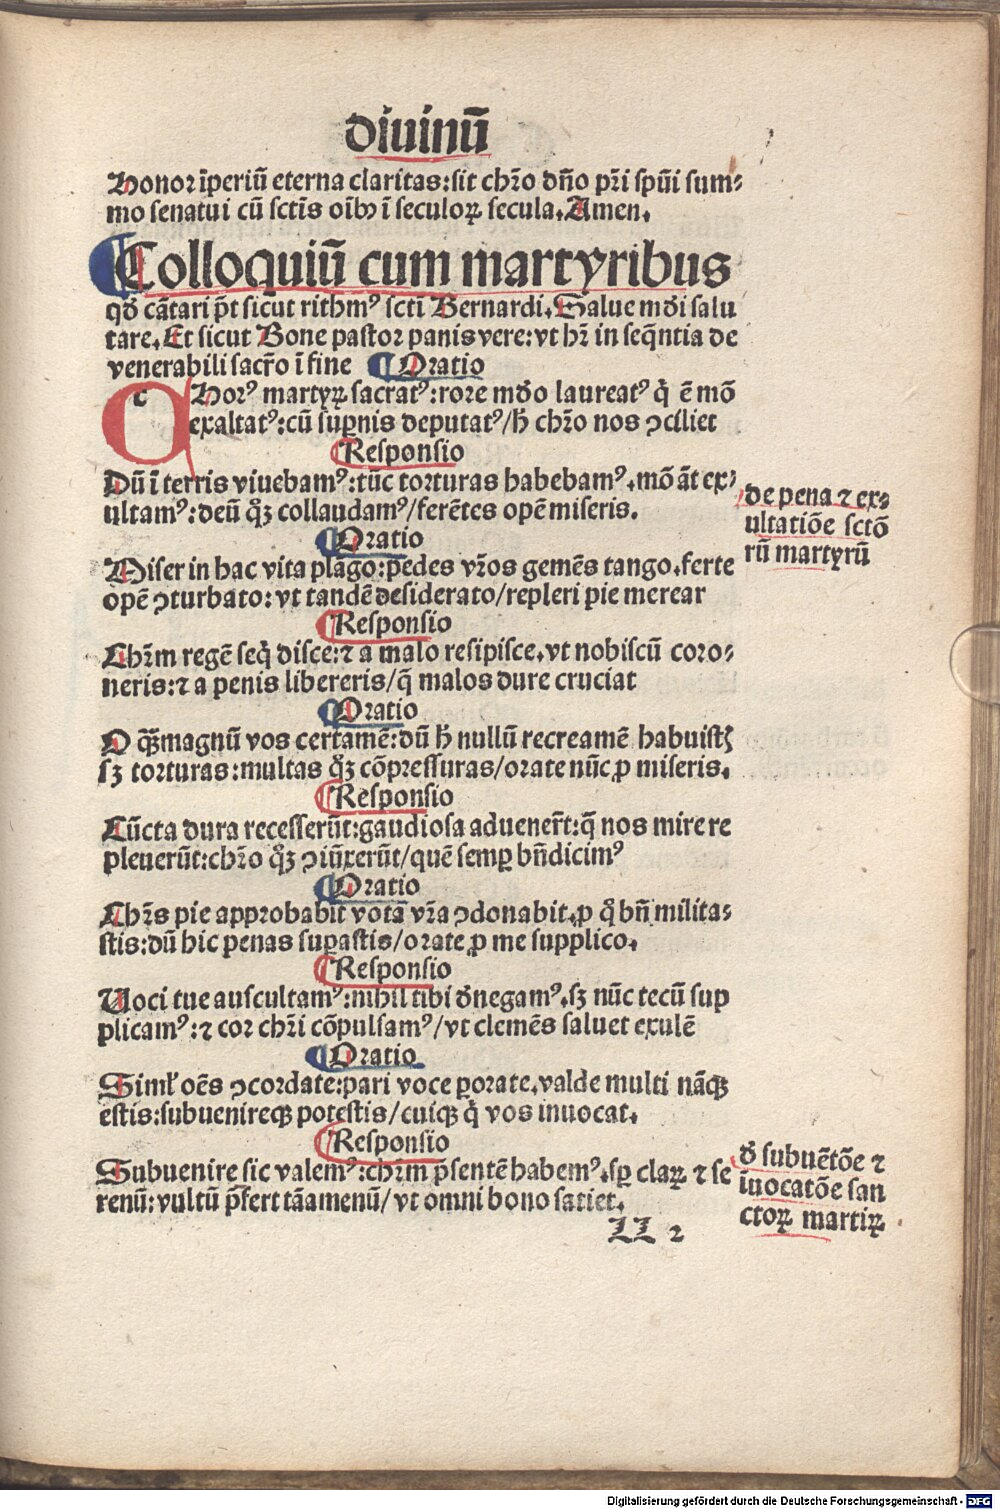 diuinū
Honor īperiū eterna claritas:sit chr̄o dn̄o pr̄i spūi sum⸗
mo senatui cū sctīs oīb⁹ ī seculoꝝ secula. Amen.
¶Colloquiū cum martyribus
qd̄ cātari pt̄ sicut rithm⁹ sctī Bernardi. Salue mūdi salu
tare. Et sicut Bone pastor panis vere:vt hr̄ in seq̄ntia de
venerabili sacr̄o ī fine ¶Oratio
CHor⁹ martyꝝ sacrat⁹:rore mūdo laureat⁹ qͥ ē mō
exaltat⁹:cū suꝑnis deputat⁹/h̄ chr̄o nos ꝯciliet
¶Responsio
Dū ī terris viuebam⁹:tūc torturas habebam⁹.mō āt ex⸗
ultam⁹:deū qͦꝫ collaudam⁹/ferētes opē miseris.
de pena ⁊ ex⸗
ultatiōe sctō
rū martyrū
¶Oratio
Miser in hac vita plāgo:pedes vr̄os gemēs tango.ferte
opē ꝯturbato:vt tandē desiderato/repleri pie merear
¶Responsio
Chr̄m regē seqͥ disce:⁊ a malo resipisce.vt nobiscū coro⸗
neris:⁊ a penis libereris/q̄ malos dure cruciat
¶Oratio
O qͣꝫ magnū vos certamē:dū h̄ nullū recreamē habuistꝭ
sꝫ torturas:multas qͦꝫ cōpressuras/orate nūc ꝓ miseris.
¶Responsio
Cūcta dura recesserūt:gaudiosa aduener̄t:q̄ nos mire re
pleuerūt:chr̄o qͦꝫ ꝯiūxerūt/quē semꝑ bn̄dicim⁹
¶Oratio
Chr̄s pie approbabit vota vr̄a ꝯdonabit.ꝓ qͦ bn̄ milita⸗
stis:dū hic penas suꝑastis/orate ꝓ me supplico.
¶Responsio
Uoci tue auscultam⁹:nihil tibi d̄negam⁹.sꝫ nūc tecū sup
plicam⁹:⁊ cor chr̄i cōpulsam⁹/vt clemēs saluet exulē
¶Oratio
Siml' oēs ꝯcordate:pari voce ꝑorate.valde multi nāqꝫ
estis:subuenireqꝫ potestis/cuiqꝫ qͥ vos inuocat.
¶Responsio
Subuenire sic valem⁹:chr̄m p̄sentē habem⁹.sꝑ claꝝ ⁊ se
renū:vultū p̄fert tā amenū/ vt omni bono satiet.
d̄ subuētōe ⁊
īuocatōe san
ctoꝝ martiꝝ
LL 2
Digitalisierung gefördert durch die Deutsche Forschungsgemeinschaft - DFG